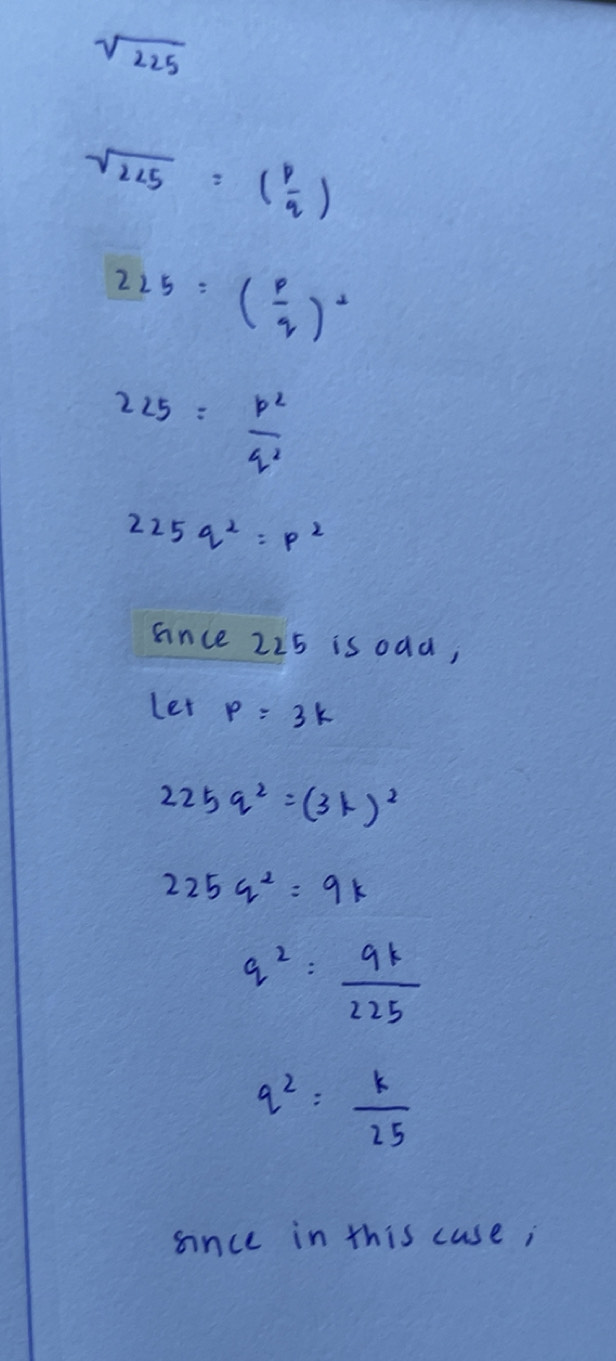 √225
√225 = (p/q)
225 = (p/q)²
225 = p²/q²
225 q² = p²
since 225 is odd,
Let p = 3k
225 q² = (3k)²
225 q² = 9k
q² = 9k/225
q² = k/25
since in this case,